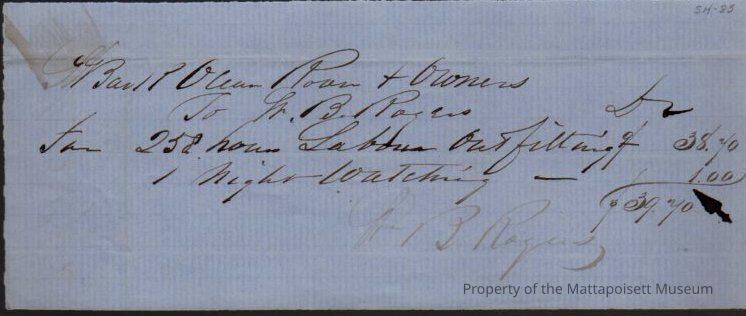 SH-85
Bark Ocean Rover & Owners
To W. B. Rogers Dr
For 258 hours Labour Outfitting $ 38.70
1 Night Watching — 1.00
$ 39.70
Wm B Rogers
Property of the Mattapoisett Museum